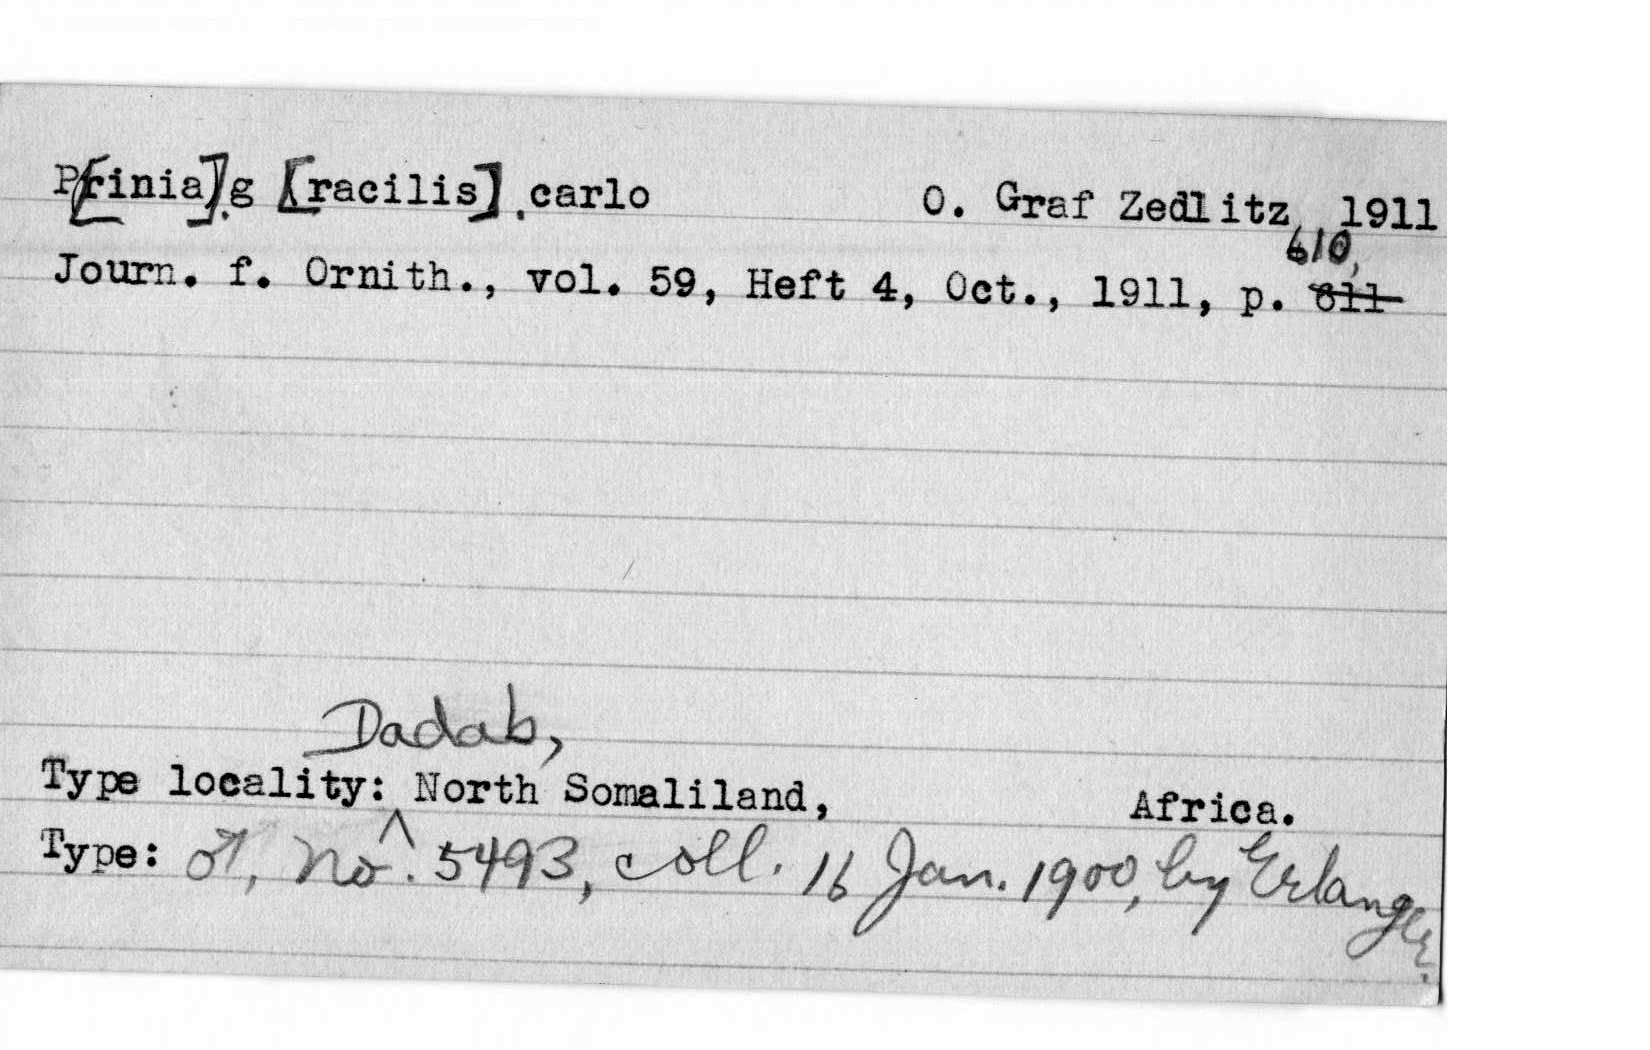 P[rinia]. g [racilis]. carlo O. Graf Zedlitz, 1911
610,
Journ. f. Ornith., vol. 59, Heft 4, Oct., 1911, p. 611
Dadab,
Type locality: ^ North Somaliland, Africa.
Type: ♂, No. 5493, coll. 16 Jan. 1900, by Erlanger.